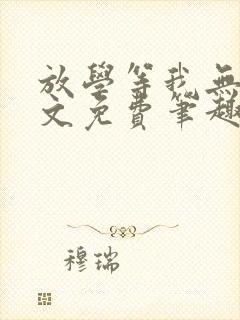 放學等我無
文免費筆趣
穆瑞